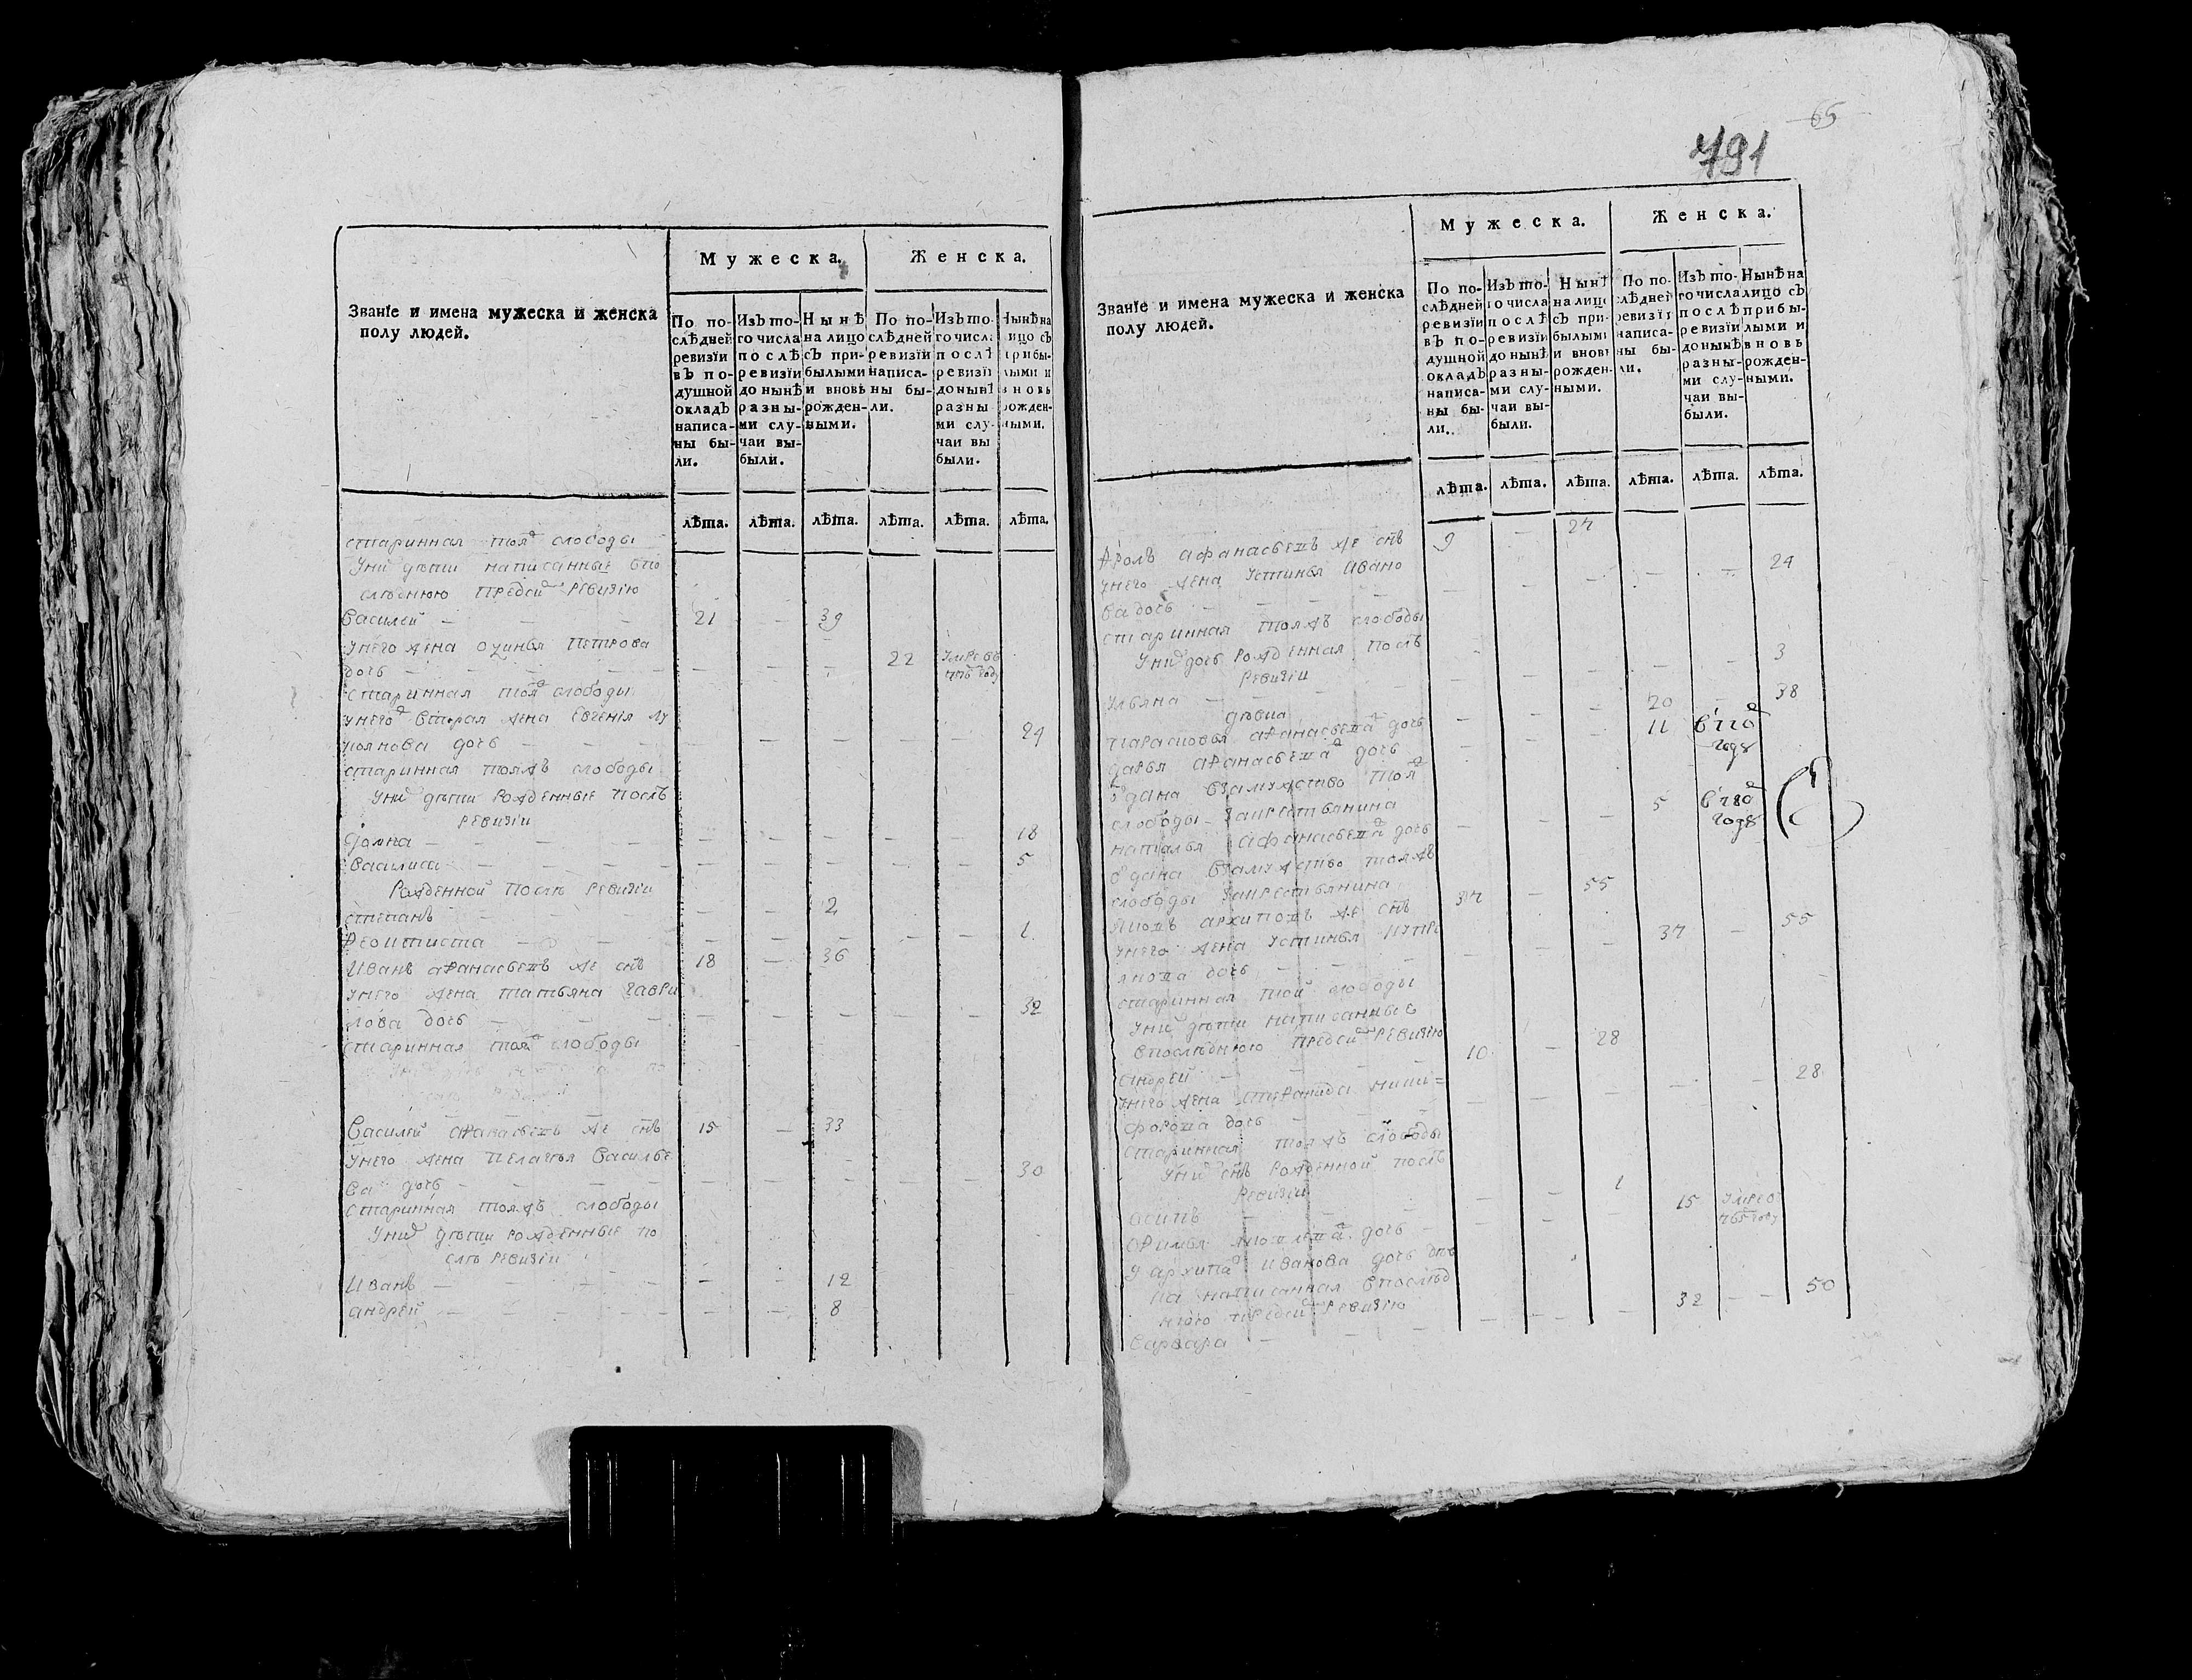 Званїе и имена мужеска и женска
полу людей.
Мужеска.
Женска.
По по-
слѣдней
ревизїи
вЪ по-
душной
окладЪ
написа-
ны бы-
ли.
ИзЪ то-
го числа
послѣ
ревизїи
до нынѣ
разны-
ми слу-
чаи вы-
были.
Нынѣ
на лицо
сЪ при-
былыми
и вновь
рожден-
ными.
По по-
слѣдней
ревизїи
написа-
ны бы-
ли.
ИзЪ то-
го числа
послѣ
ревизїи
до нынѣ
разны-
ми слу-
чаи вы-
были.
Нынѣ на
лицо сЪ
прибы-
лыми и
вновь
рожден-
ными.
лѣта. лѣта. лѣта. лѣта. лѣта. лѣта.
старинная тояж слободы
у них дѣти написанные впо
слѣднюю пред сим ревизїю
Василей — 21 — 39
у него жена Петрова
дочь — 22 умре въ
году
старинная тояж слободы
у него ж вторая жена Евгенїя Лу
дочь — 29
старинная тояжъ слободы
у них дѣти рожденные послѣ
ревизїи
Домна — 18
Василиса — 5
рожденной послѣ ревизїи
Степанъ — 2
Феоктиста — 1
Иванъ Афанасьевъ же снъ 18 — 36
у него жена Татьяна Гаври
лова дочь — 32
старинная тояж слободы
Василей Афанасьевъ же снъ 15 — 33
у него жена Пелагея Василье
ва дочь — 30
старинная тояжъ слободы
у них дѣти рожденные по
слѣ ревизїи
Иванъ — 12
Андрей — 8
65
791
Званїе и имена мужеска и женска
полу людей.
Мужеска.
Женска.
По по-
слѣдней
ревизїи
вЪ по-
душной
окладЪ
написа-
ны бы-
ли.
ИзЪ то-
го числа
послѣ
ревизїи
до нынѣ
разны-
ми слу-
чаи вы-
были.
Нынѣ
на лицо
сЪ при-
былыми
и вновь
рожден-
ными.
По по-
слѣдней
ревизїи
написа-
ны бы-
ли.
ИзЪ то-
го числа
послѣ
ревизїи
до нынѣ
разны-
ми слу-
чаи вы-
были.
Нынѣ на
лицо сЪ
прибы-
лыми и
вновь
рожден-
ными.
лѣта. лѣта. лѣта. лѣта. лѣта. лѣта.
Фролъ Афанасьевъ же снъ 9 — 27
у него жена Устинья Ивано
ва дочь — 24
старинная тояжъ слободы
у них дочь рожденная послѣ
ревизїи
Ульяна — 3
дѣвка
Парасковья Афанасьева ж дочь 20 — 38
Дарья Афанасьева ж дочь 11
отдана взамужство тояж
слободы за крестьянина
году
Наталья Афанасьева ж дочь 5
отдана взамужство тояжъ
слободы за крестьянина
году
Яковъ Архиповъ же снъ 37 — 55
у него жена Устинья Купре
янова дочь — 37 — 55
старинная той слободы
у них дѣти написанные
впослѣднюю пред сим ревизїю
Андрей — 10 — 28
у него жена Степанида Ники=
форова дочь — 28
старинная тояжъ слободы
у них снъ рожденной послѣ
ревизїи
Осипъ — 1
Яковлева ж дочь — 15 умре
году
у Архипа Иванова дочь дѣв
ка написанная впослѣд
нюю пред сим ревизїю
Варвара — 32 — 50